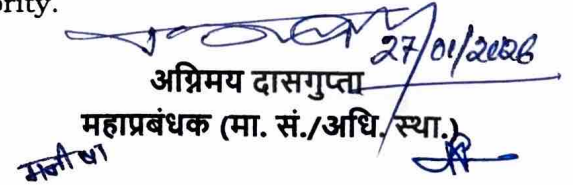 ority.
27/01/2026
अग्निमय दासगुप्ता
महाप्रबंधक (मा. सं./अधि. स्था.)
मनीषा